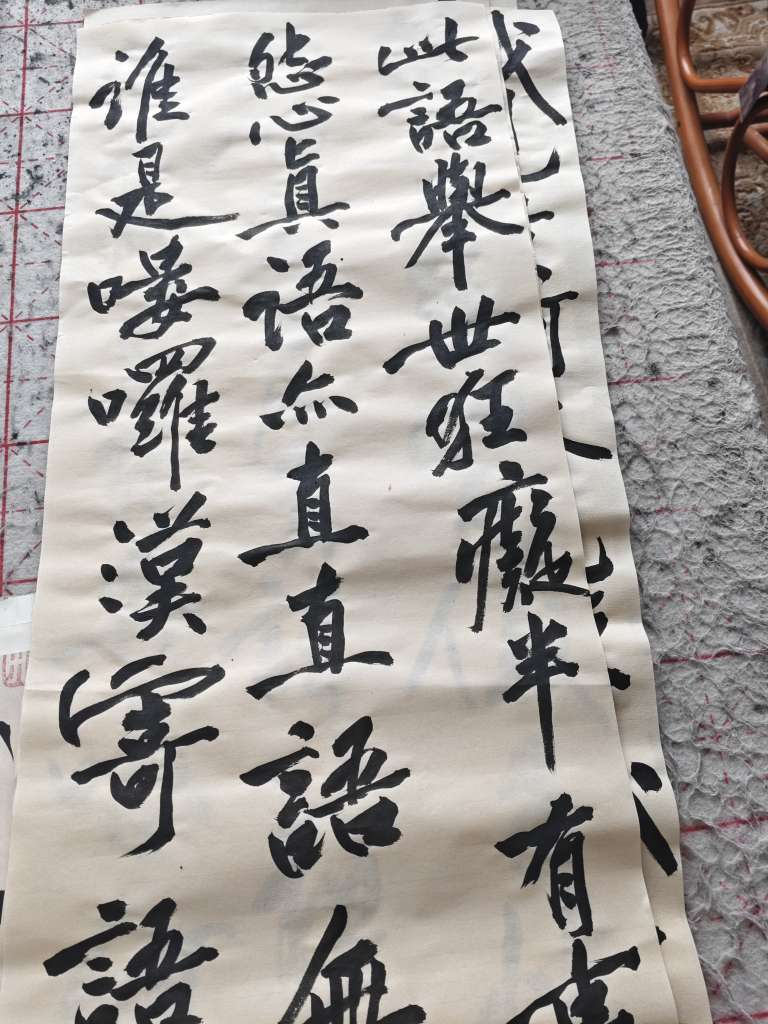 此語舉世狂癡半有事
怨心眞語亦直直語無
誰是嘍囉漢寄語